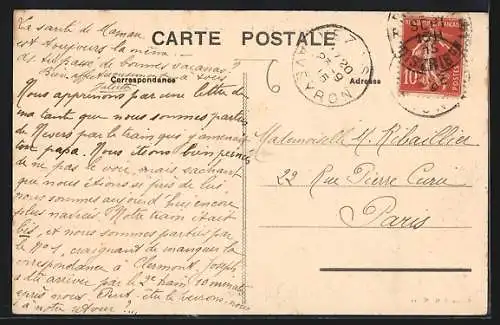 La santé de Maman
est toujours la même.
as tu passé de bonnes vacances?
Bien affectueusement à vous
CARTE POSTALE
Correspondance
Adresse
Nous apprenons par une lettre de
ma tante que nous sommes partis
de Nevers par le train que t'amenait
ton papa. Nous étions bien peinés
de ne pas le voir, mais sachant
que nous étions si près de lui
nous sommes aujourd'hui encore
plus navrés. Notre train était
bis, et nous sommes partis par
le No 1, craignant de manquer la
correspondance à Clermont. Joseph
a dû arriver par le 2e train 10 minutes
après nous. Peut-être le verrons-nous
à notre retour?...
Mademoiselle M. Ribaillier
22 Rue Pierre Curie
Paris
6
AVEYRON
10
POSTES